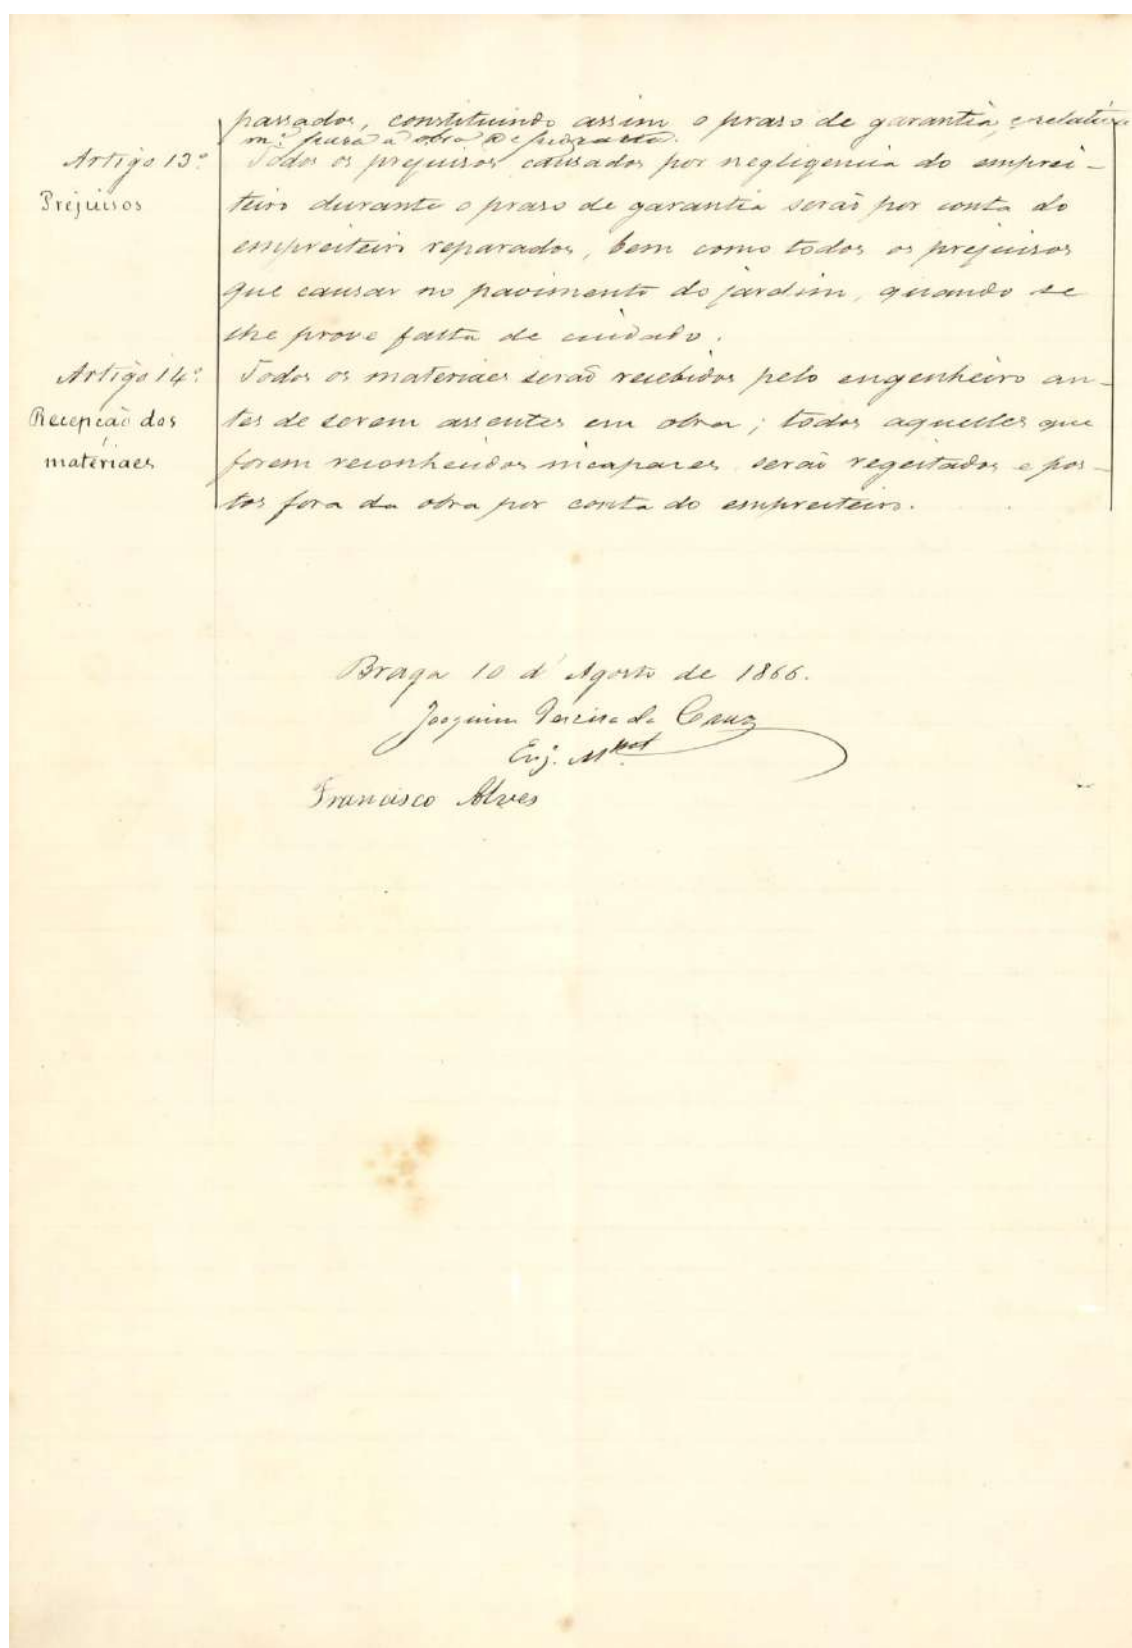 passados, constituindo assim o praso de garantia, e relativa
m.e para a obra de
Artigo 13º Todos os prejuisos causados por negligencia do emprei-
Prejuisos teiro durante o praso de garantia serão por conta do
empreiteiro reparados, bem como todos os prejuisos
que causar no pavimento do jardim, quando se
lhe prove falta de cuidado.
Artigo 14º Todos os materiaes serão recebidos pelo engenheiro an-
Recepção dos tes de serem assentes em obra; todos aquelles que
matériaes forem reconhecidos incapazes serão regeitados e pos-
tos fora da obra por conta do empreiteiro.
Braga 10 d'Agosto de 1866.
Joaquim Pereira da Cruz
Eng.
Francisco Alves